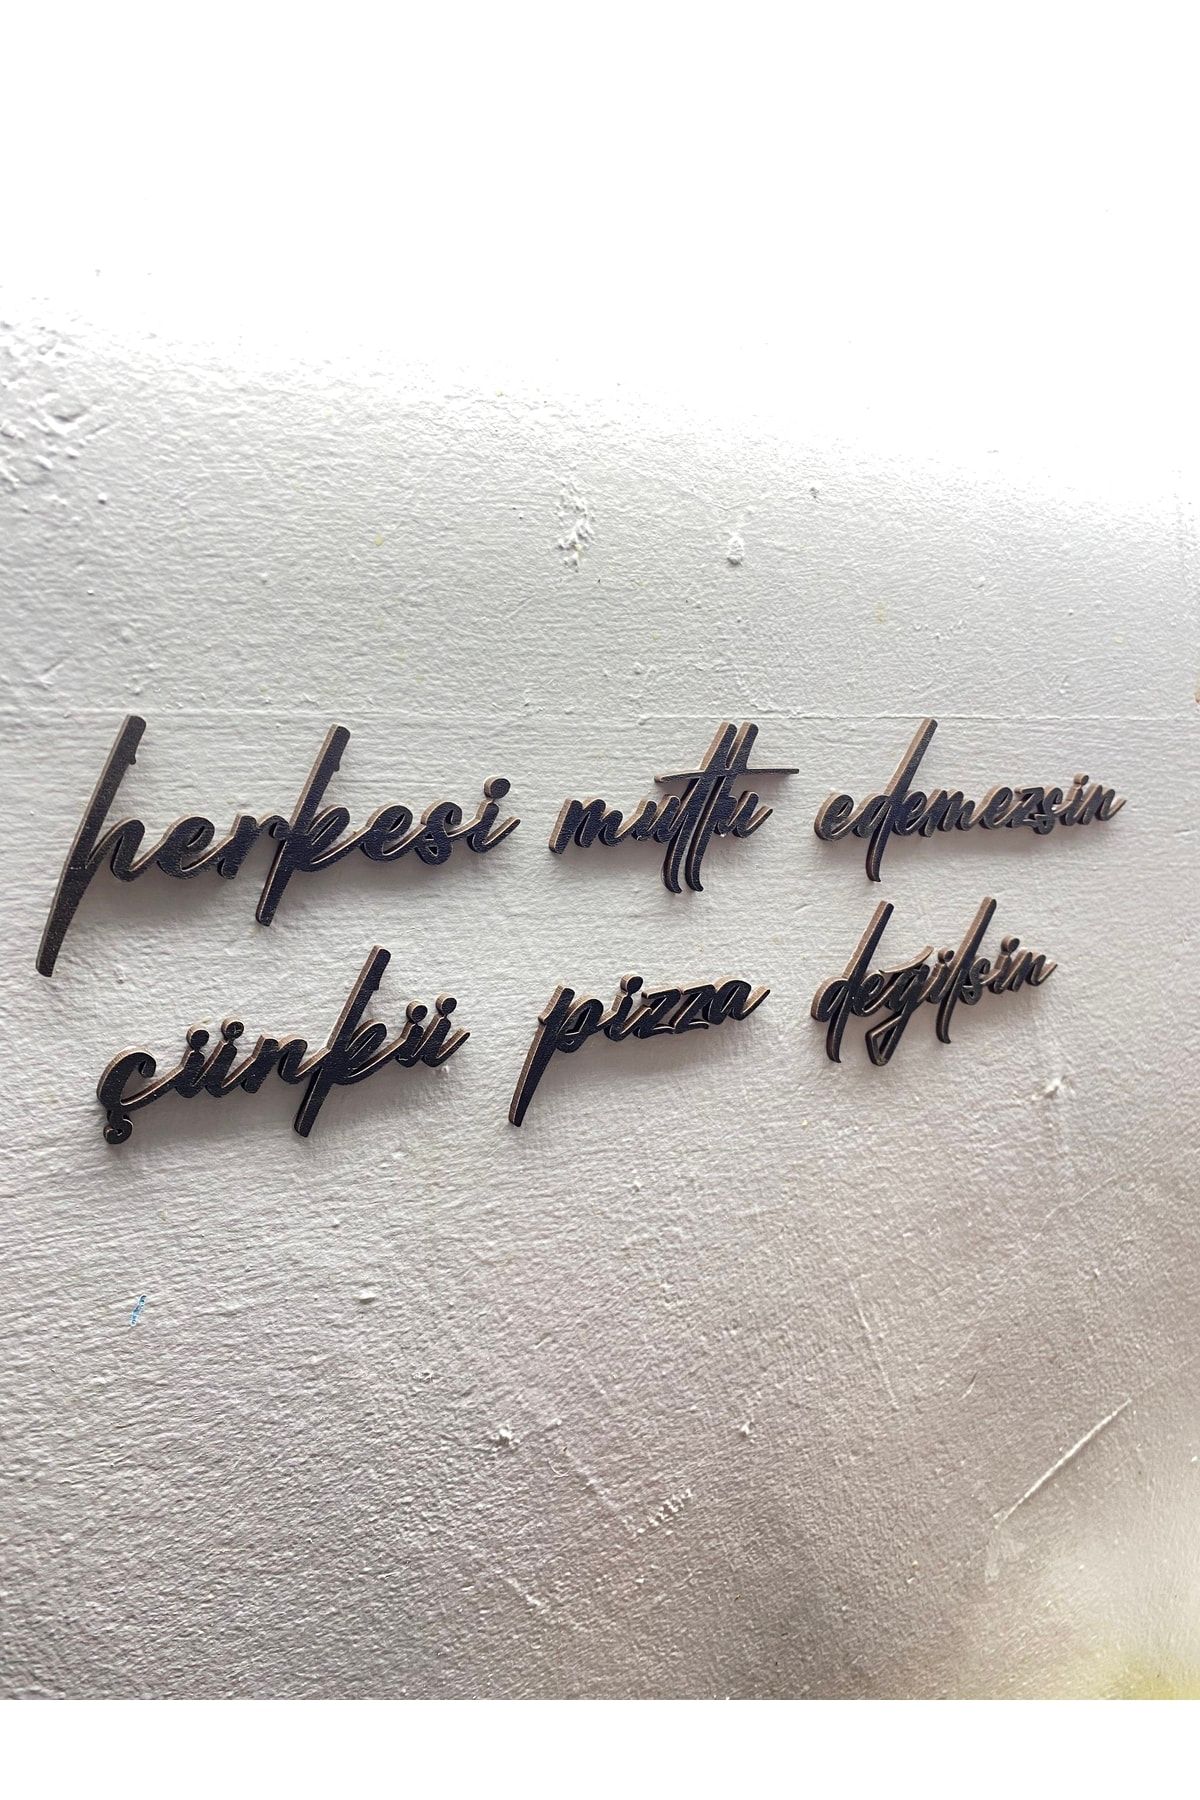 herkesi mutlu edemezsin
çünkü pizza değilsin